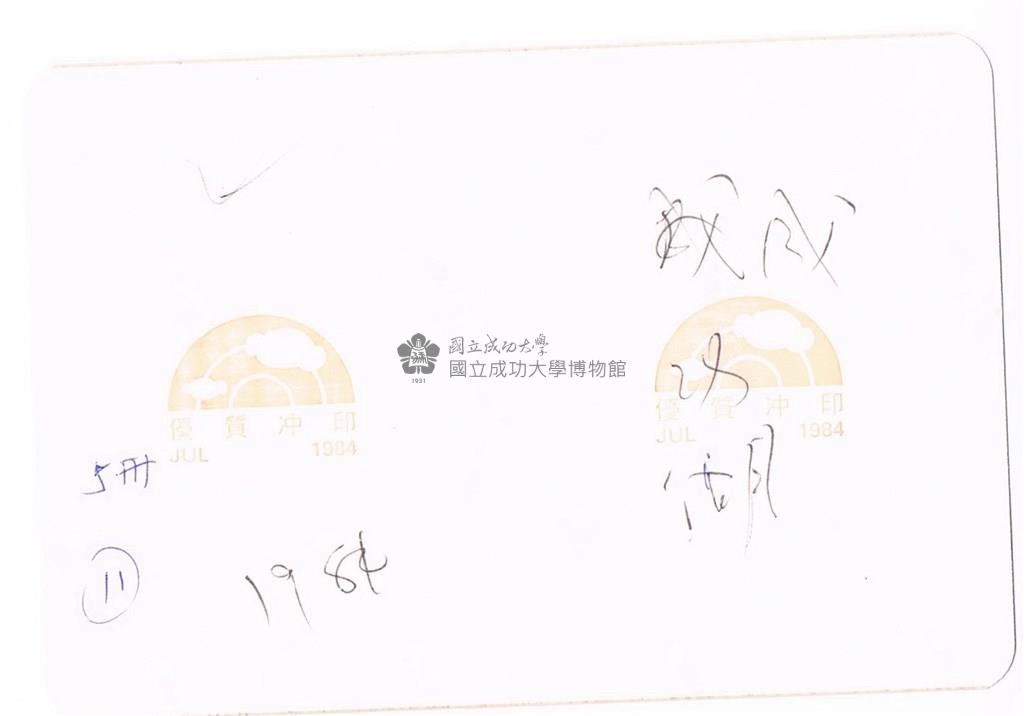 成
功
湖
優質冲印
JUL 1984
國立成功大學
國立成功大學博物館
1931
優質冲印
JUL 1984
5册
11
1984